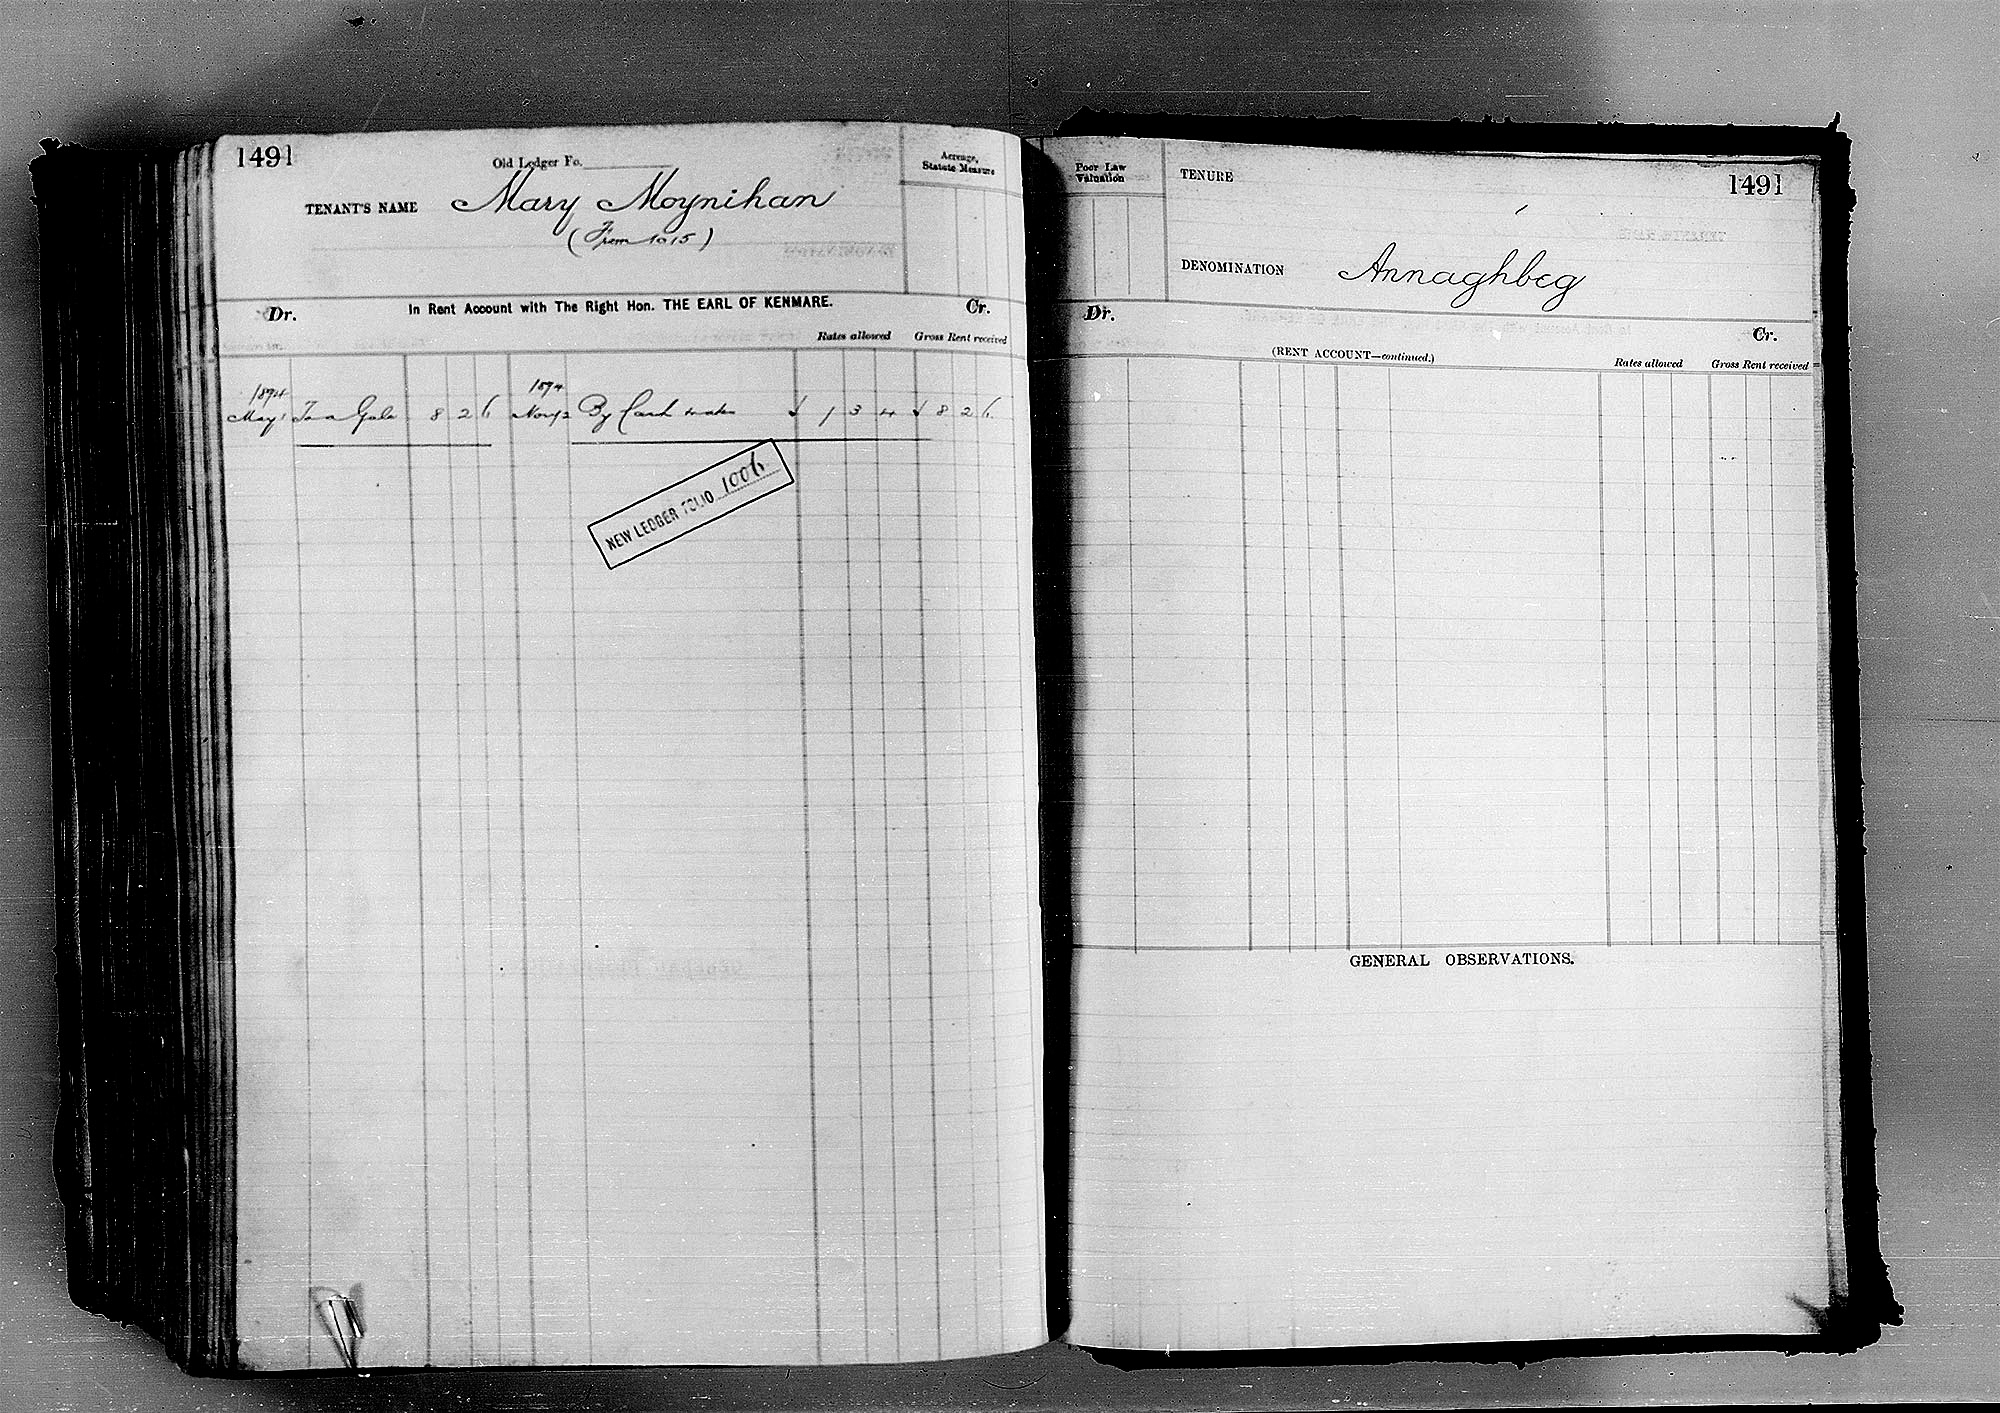 1491
Old Ledger Fo.
Acreage, Statute Measure
TENANT'S NAME Mary Moynihan
(From 1015)
In Rent Account with The Right Hon. THE EARL OF KENMARE.
Dr. Cr.
Rates allowed Gross Rent received
1894 1894
May 1 To a Gale 8 2 6 Nov 12 By Cash & rates 1 3 4 8 2 6
NEW LEDGER FOLIO 1006
Poor Law Valuation
TENURE
1491
DENOMINATION Annaghbeg
Dr. Cr.
(RENT ACCOUNT—continued.)
Rates allowed Gross Rent received
GENERAL OBSERVATIONS.